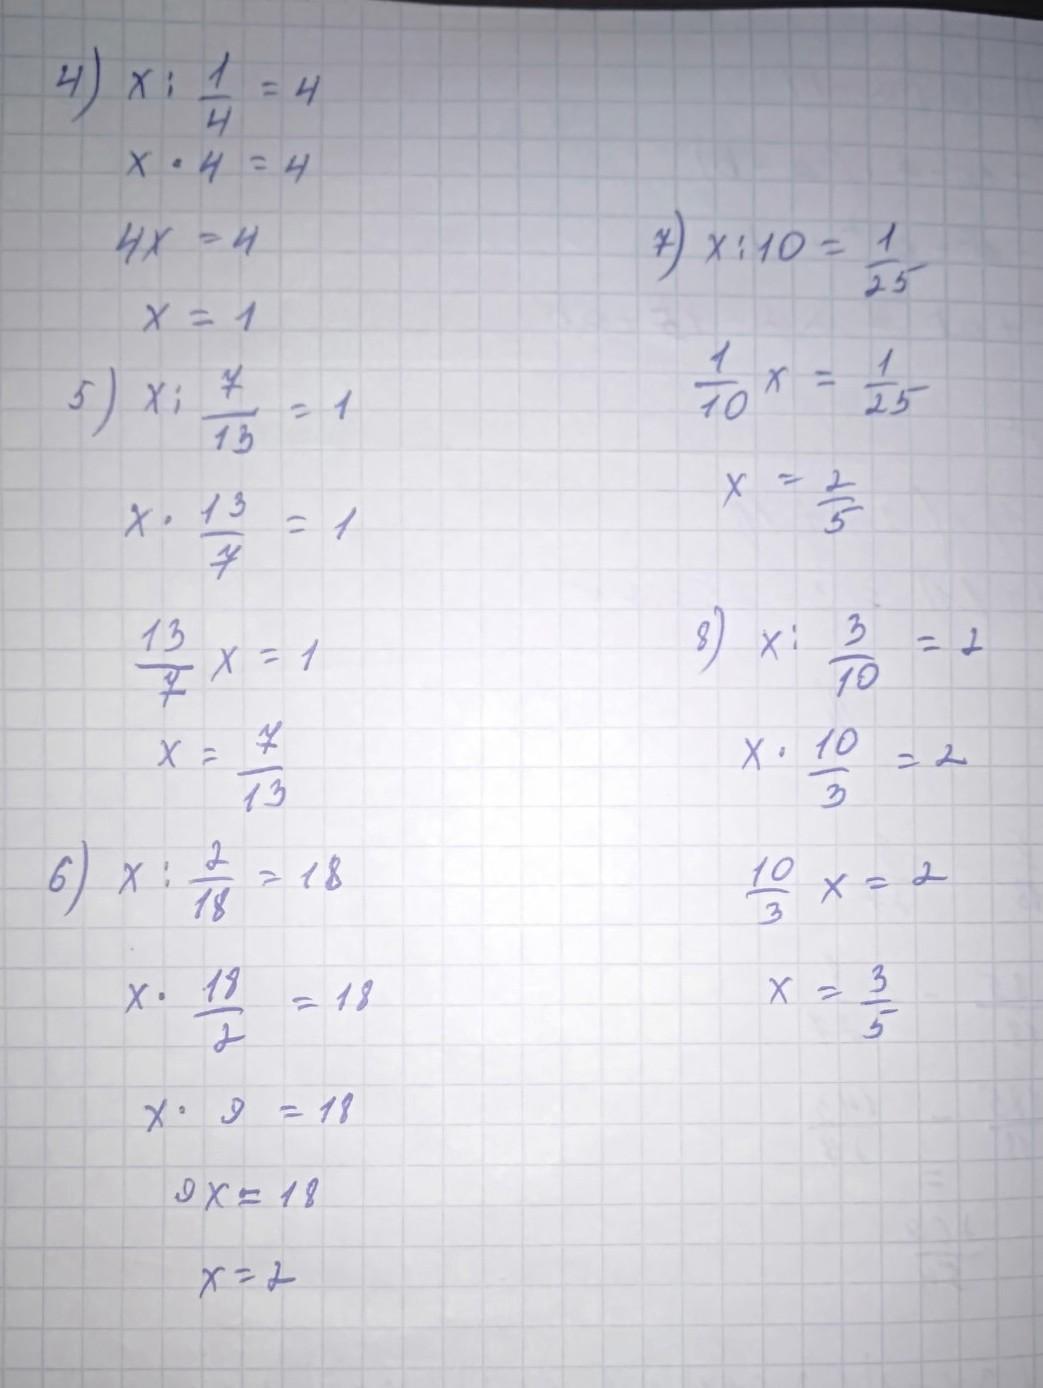 4) x : 1/4 = 4
x · 4 = 4
4x = 4
x = 1
5) x : 7/13 = 1
x · 13/7 = 1
13/7 x = 1
x = 7/13
6) x : 2/18 = 18
x · 18/2 = 18
x · 9 = 18
9x = 18
x = 2
7) x : 10 = 1/25
1/10 x = 1/25
x = 2/5
8) x : 3/10 = 2
x · 10/3 = 2
10/3 x = 2
x = 3/5